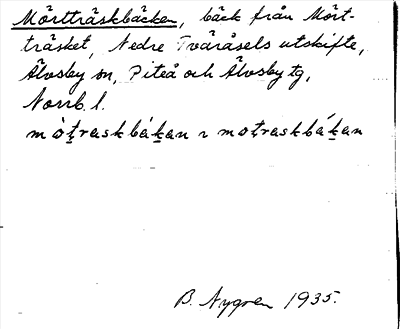 Mörtträskbäcken, bäck från Mört-
träsket, Nedre Tväråsels utskifte,
Älvsby sn, Piteå och Älvsby tg,
Norrb. l.
mòt̠raskbák̠an ꝛ mot̠raskbák̠an
B. Nygren 1935.